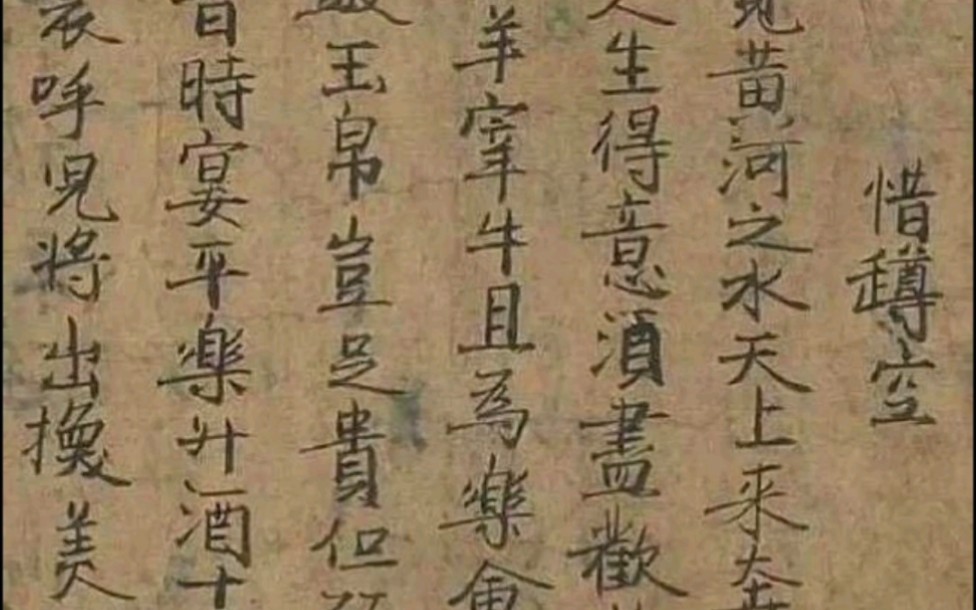 惜罇空
黄河之水天上來
人生得意酒盡歡
羊宰牛且為樂會
玉帛豈足貴但
昔時宴平樂斗酒十
裘呼兒將出換美